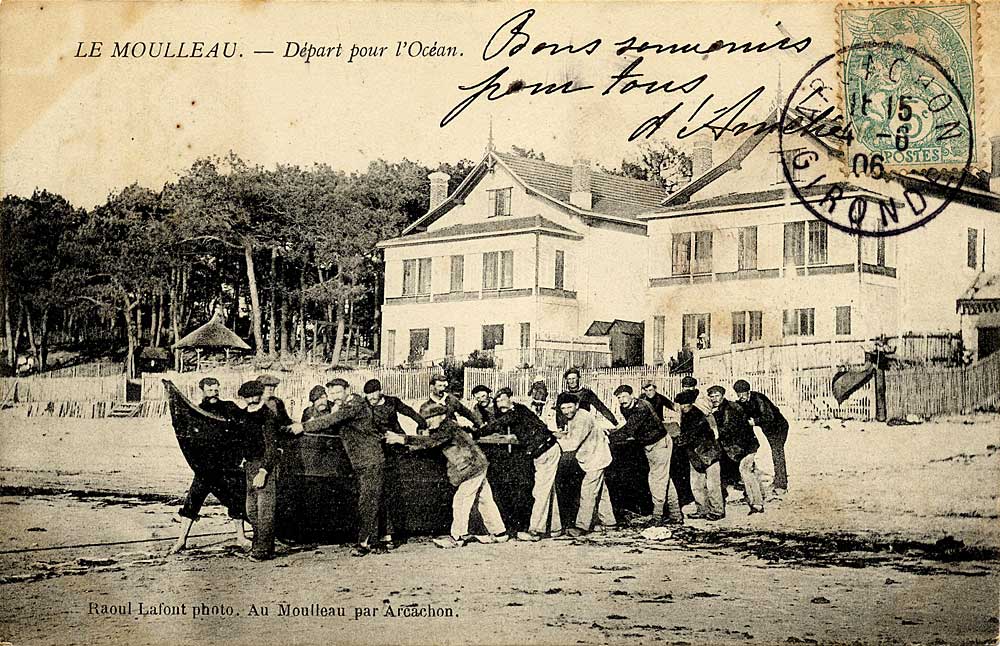 LE MOULLEAU. — Départ pour l'Océan.
Bons souvenirs
pour tous
d'Amélie
ARCACHON
15
4 - 8
06
GIRONDE
5c
POSTES
Raoul Lafont photo. Au Moulleau par Arcachon.